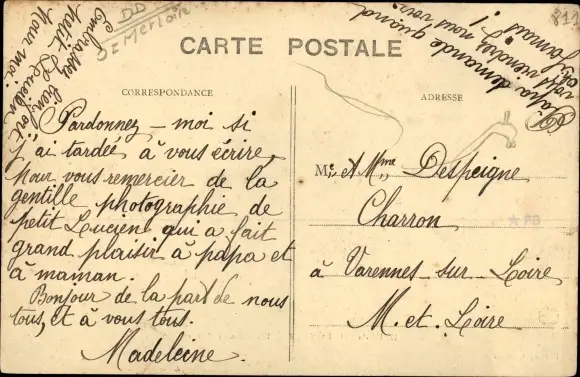 Embrasse bien fort
petit Lucien
pour moi
DD
St Mertoire
819
Papa demande quand
vous vendrez nous voir
si jamais !
CARTE POSTALE
CORRESPONDANCE
Pardonnez-moi si
j'ai tardée à vous écrire,
pour vous remercier de la
gentille photographie de
petit Lucien qui a fait
grand plaisir à papa et
à maman.
Bonjour de la part de nous
tous, et à vous tous.
Madeleine.
ADRESSE
Mr et Mme Despeigne
Charron
à Varennes-sur-Loire
M. et. Loire
FB